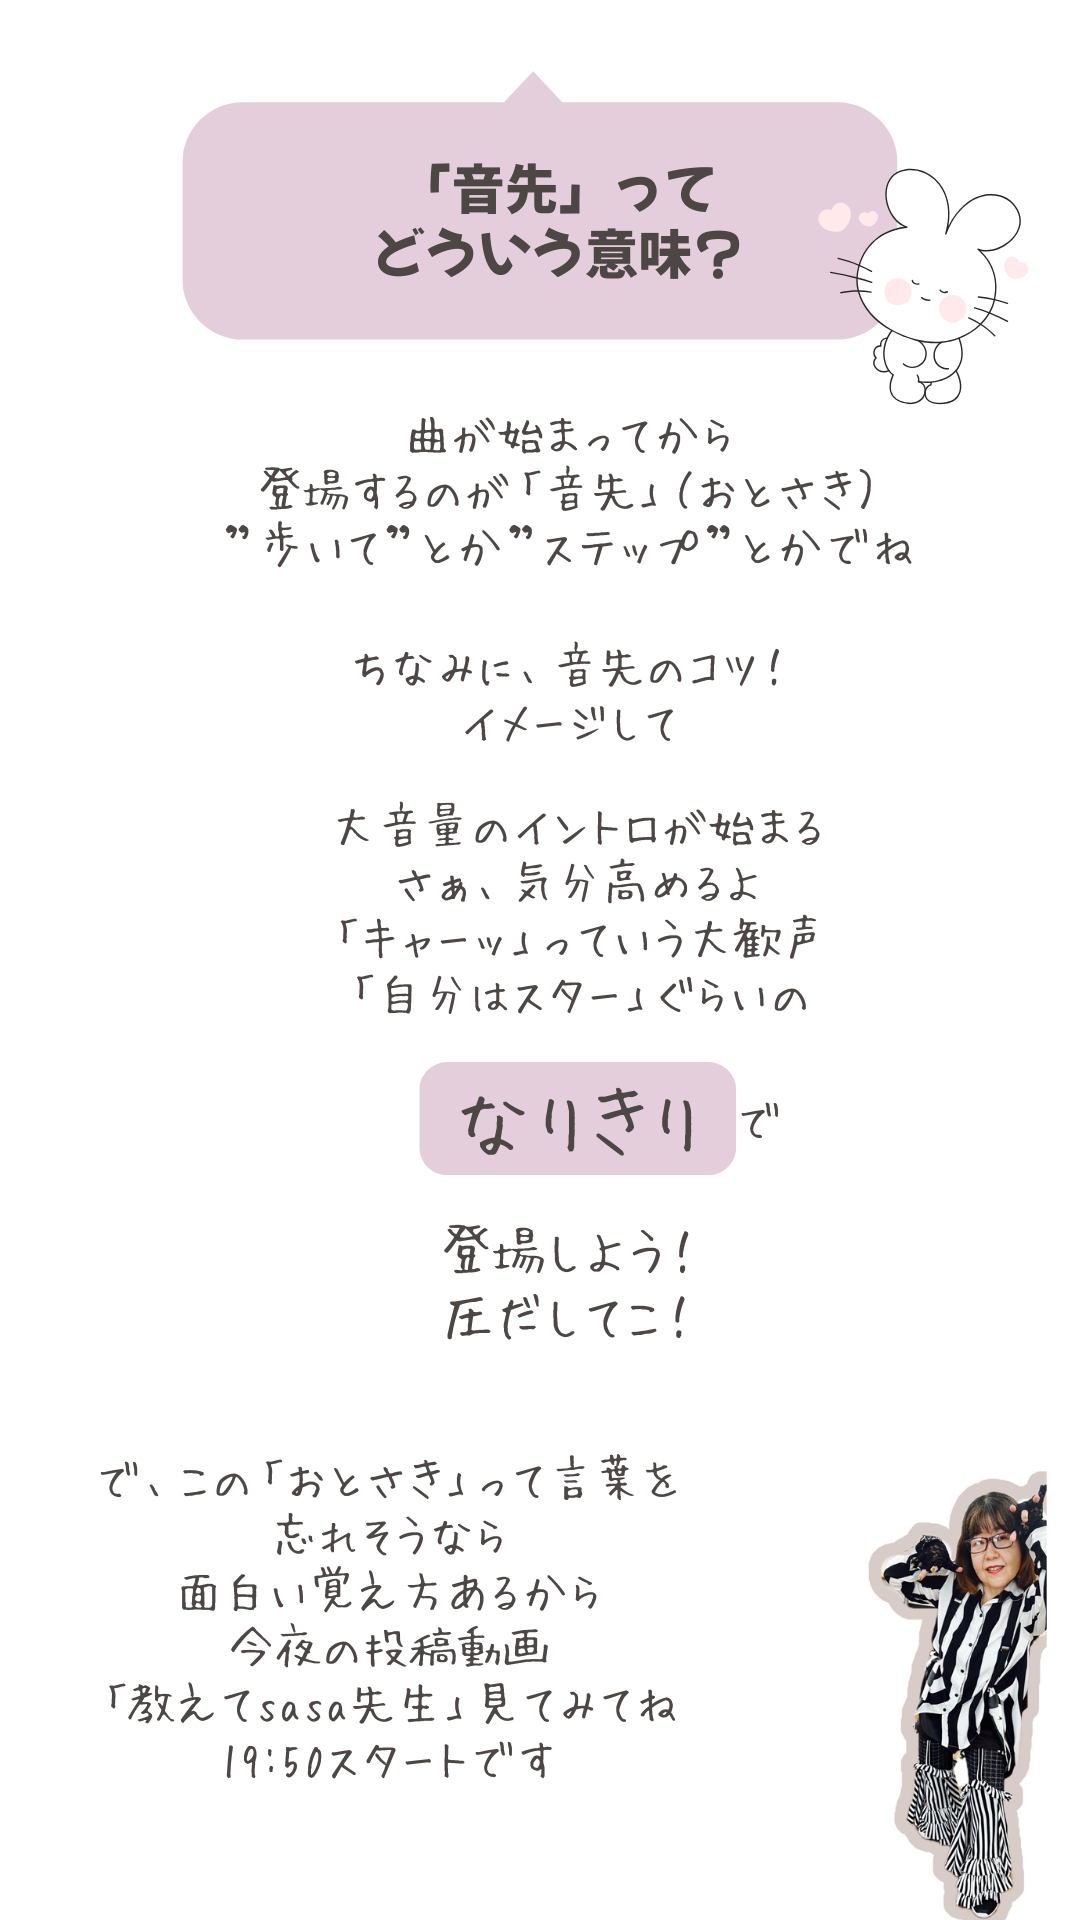 「音先」って
どういう意味？
曲が始まってから
登場するのが「音先」（おとさき）
”歩いて”とか”ステップ”とかでね
ちなみに、音先のコツ！
イメージして
大音量のイントロが始まる
さぁ、気分高めるよ
「キャーッ」っていう大歓声
「自分はスター」ぐらいの
なりきりで
登場しよう！
圧だしてこ！
で、この「おとさき」って言葉を
忘れそうなら
面白い覚え方あるから
今夜の投稿動画
「教えてsasa先生」見てみてね
19:50スタートです